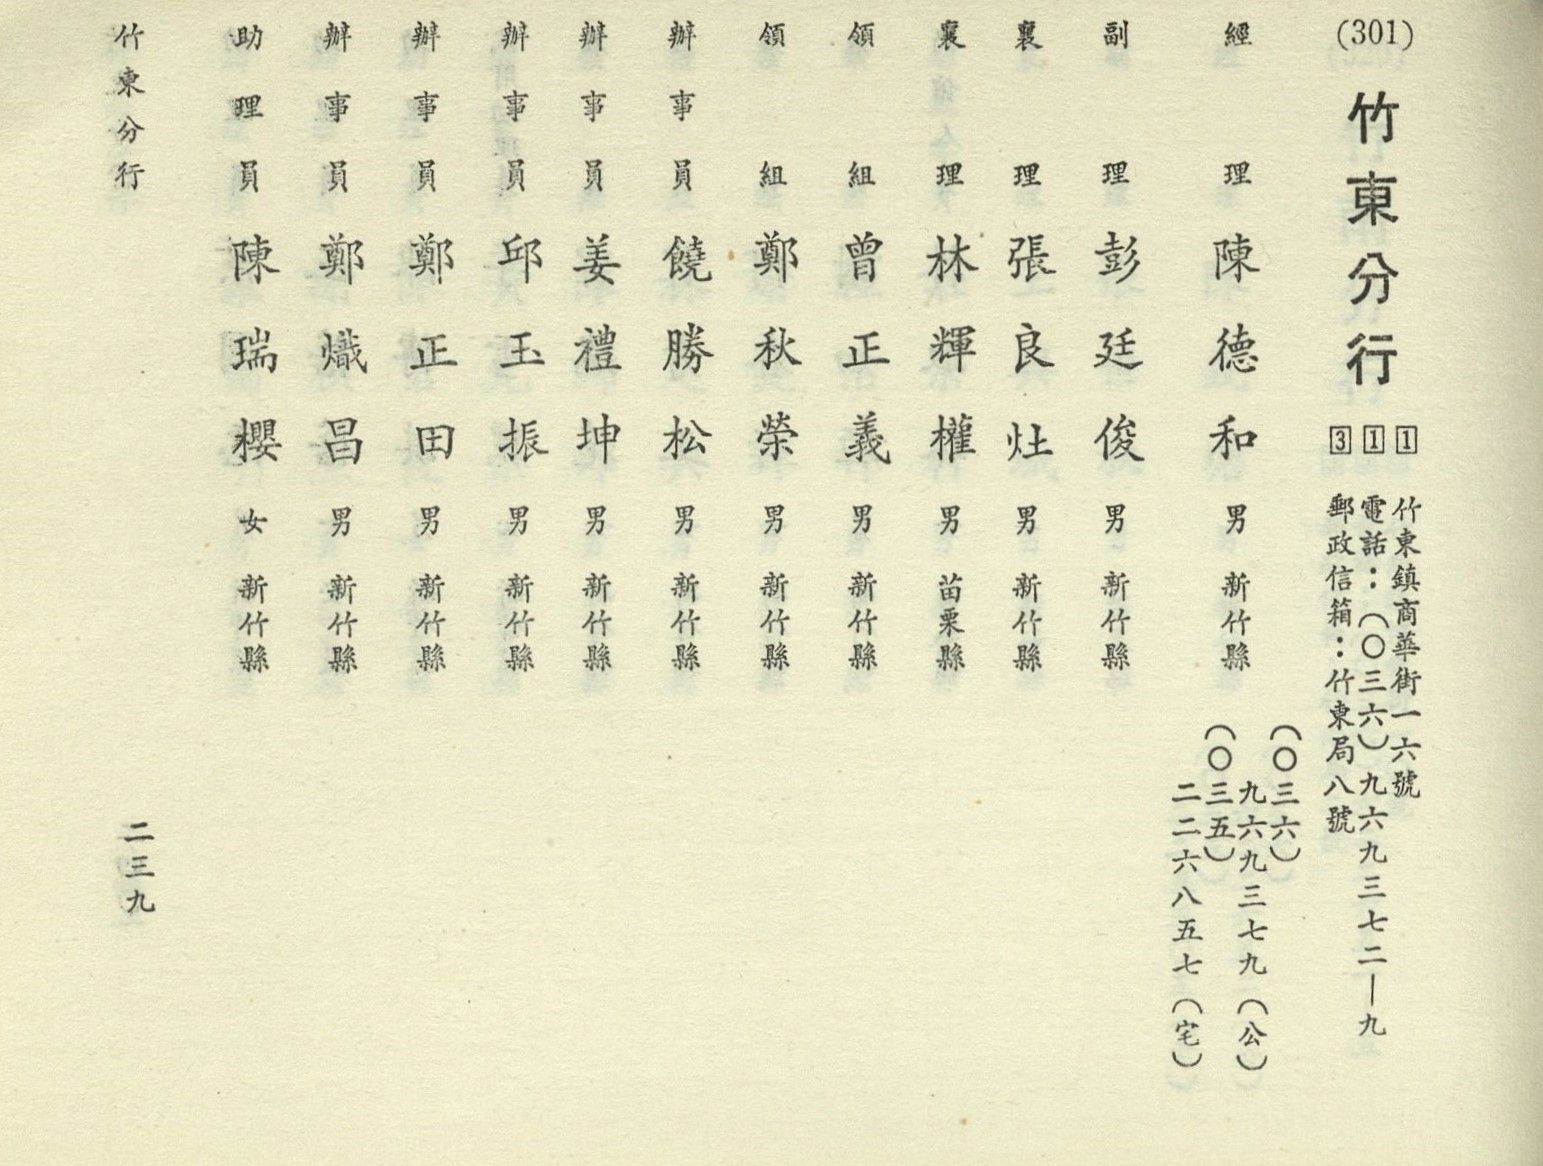 (301)
竹東分行
1 竹東鎮商華街一六號
1 電話：(〇三六)九六九三七二—九
3 郵政信箱：竹東局八號
經理 陳德和 男 新竹縣
(〇三六)
九六九三七九(公)
(〇三五)
二二六八五七(宅)
副理 彭廷俊 男 新竹縣
襄理 張良灶 男 新竹縣
襄理 林輝權 男 苗栗縣
領組 曾正義 男 新竹縣
領組 鄭秋榮 男 新竹縣
辦事員 饒勝松 男 新竹縣
辦事員 姜禮坤 男 新竹縣
辦事員 邱玉振 男 新竹縣
辦事員 鄭正田 男 新竹縣
辦事員 鄭熾昌 男 新竹縣
助理員 陳瑞櫻 女 新竹縣
竹東分行
二三九